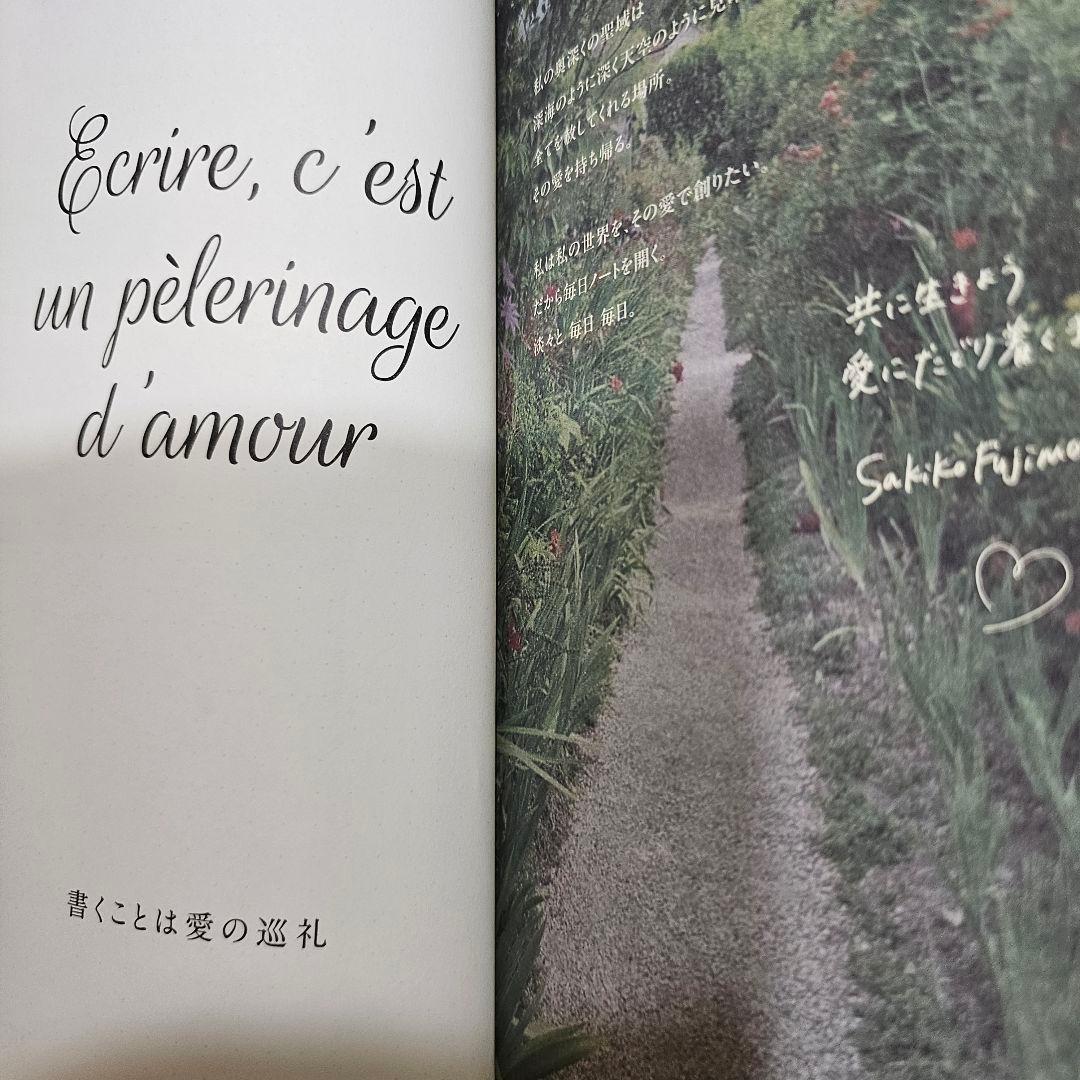 Ecrire, c'est
un pèlerinage
d'amour
書くことは愛の巡礼
私の奥深くの聖域は
深海のように深く天空のように
全てを赦してくれる場所。
その愛を持ち帰る。
私は私の世界を、その愛で創りたい。
だから毎日ノートを開く。
淡々と 毎日 毎日。
共に生きよう
愛にたどり着く
Sakiko Fujimo